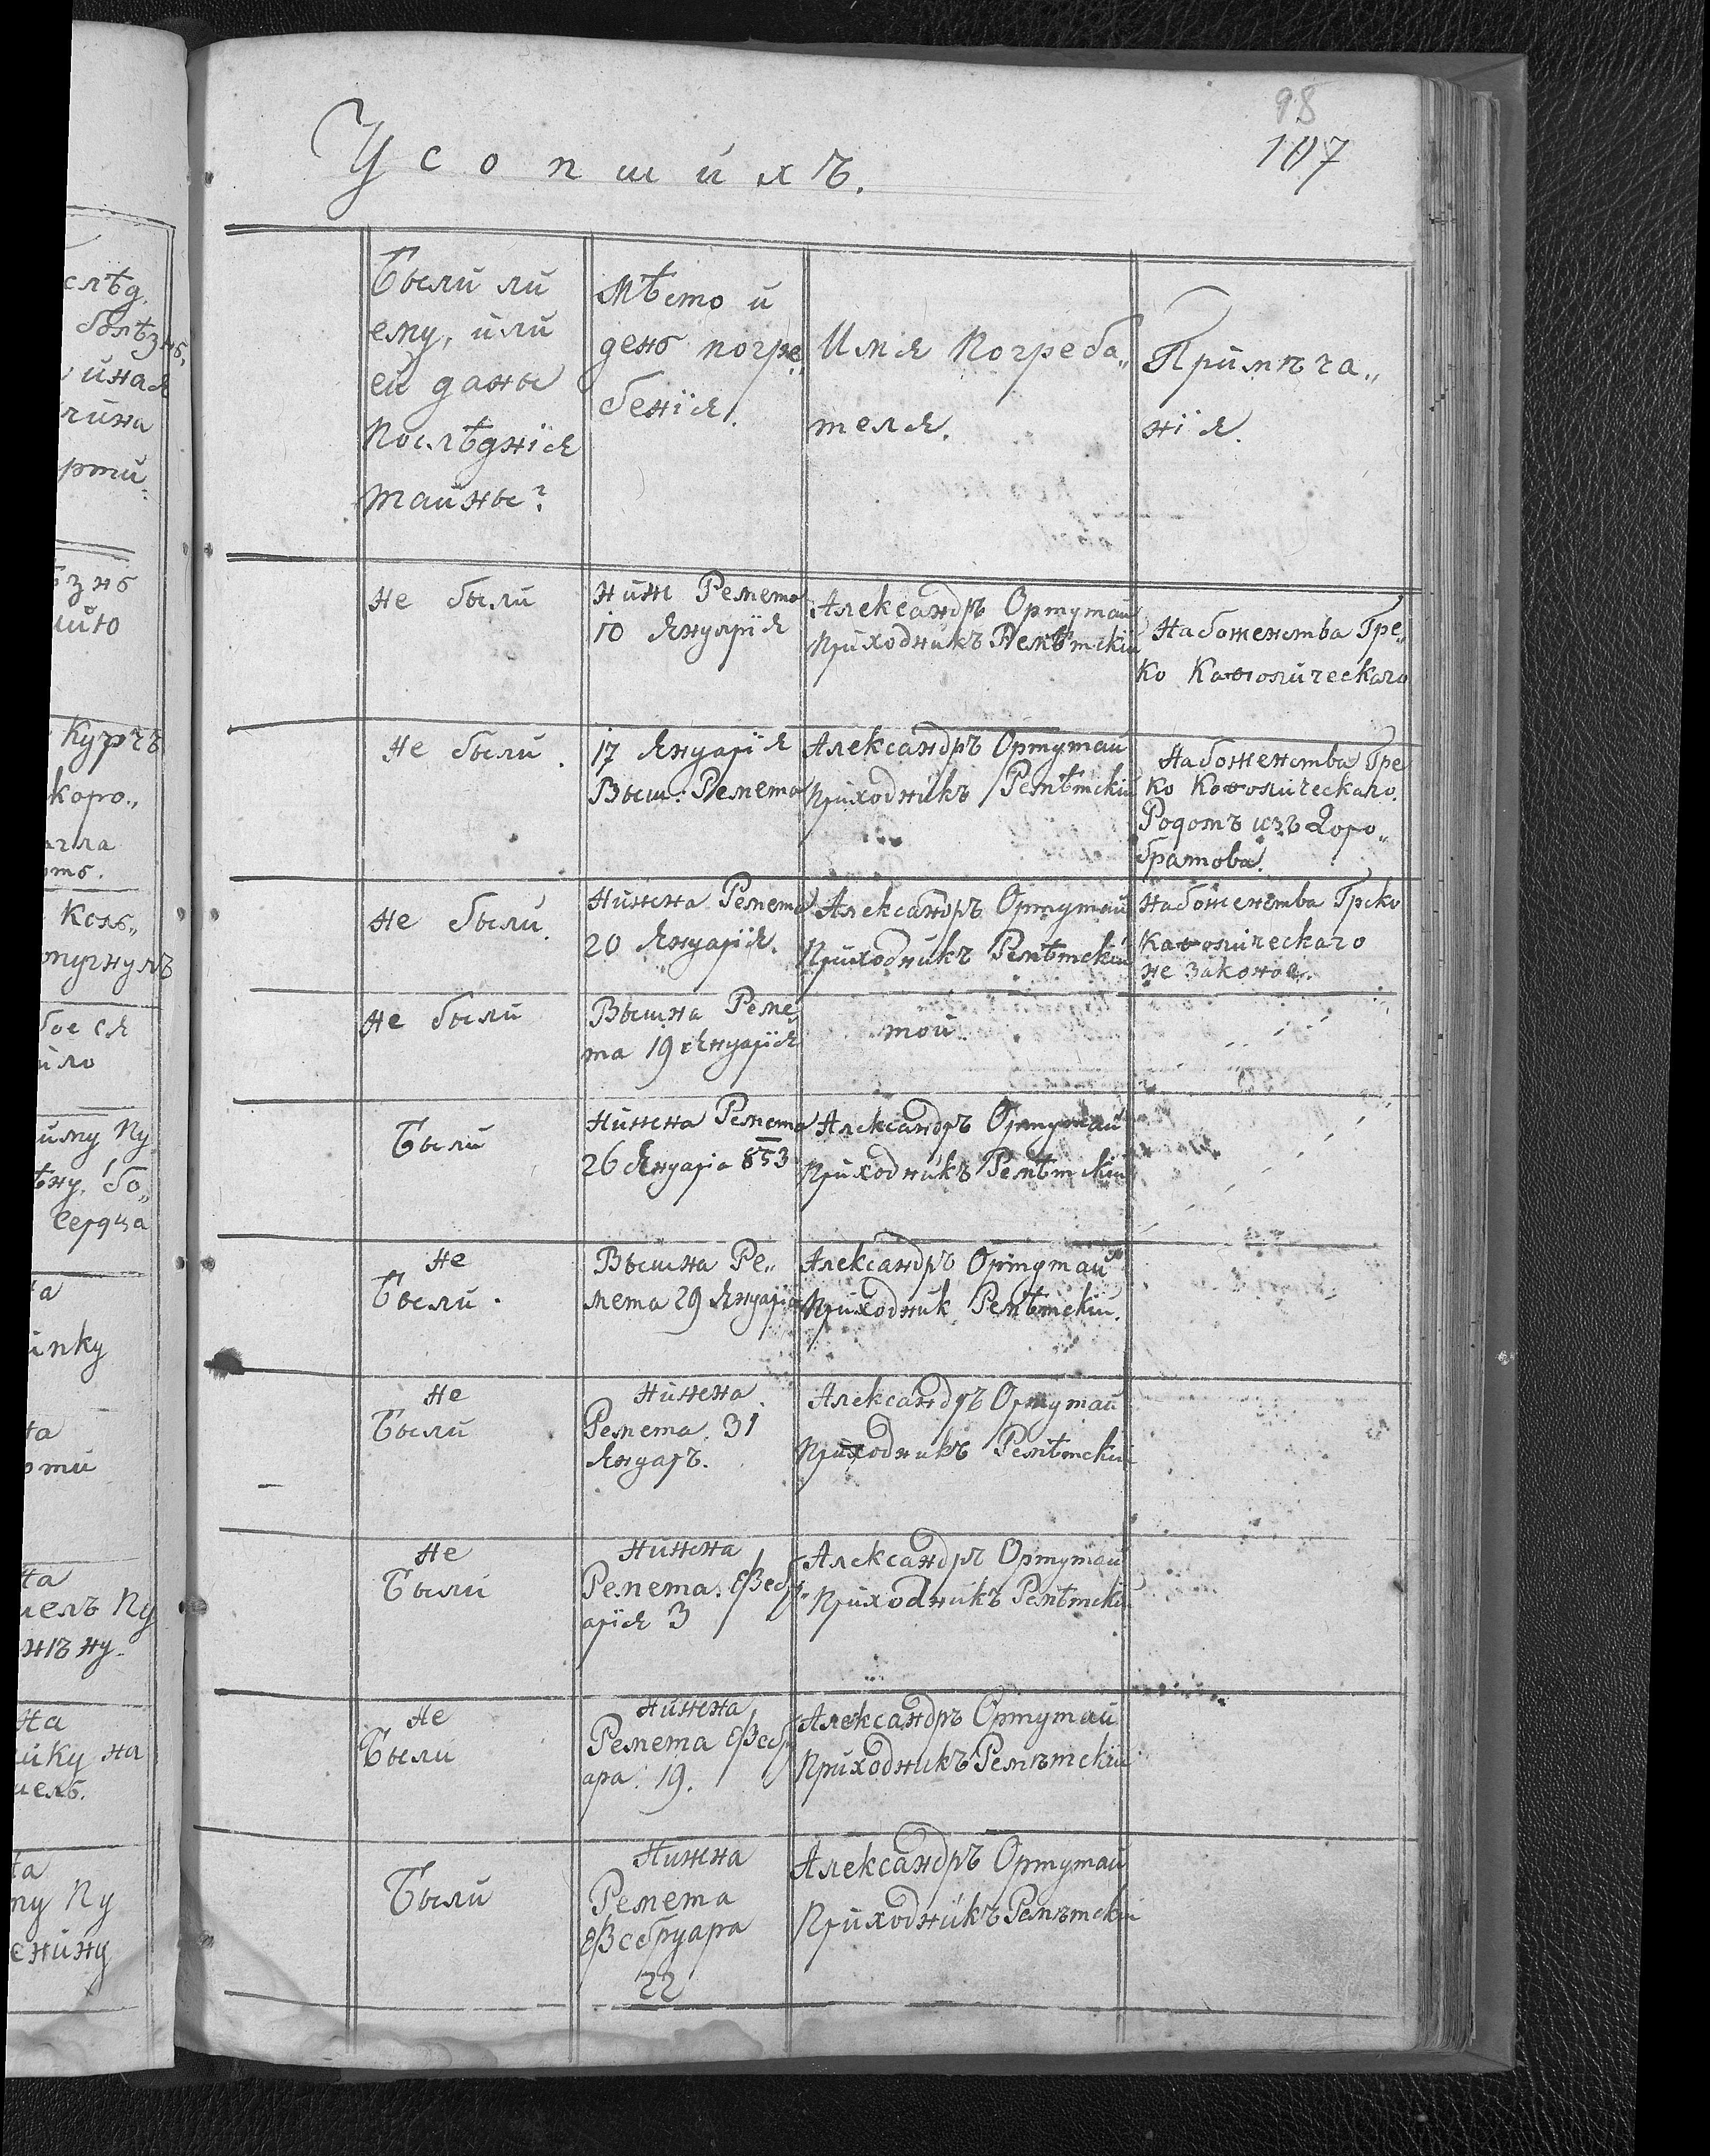 98
107
Усопшихъ.
Были ли
ему, или
ей даны
Послѣднія
тайны?
Мѣсто и
день погре„
бенїя.
Имя Погреба„
теля.
Примѣча„
нїя.
Не были
Ниж Ремета
10 Януарїя
Александръ Ортутай
Приходникъ Ремѣтскій
Набоженства Гре„
ко Каѳолическаго
Не были.
17 Януарїя
Выш: Ремета
Александръ Ортутай
Приходникъ Ремѣтскій
Набоженства Гре
ко Каѳолическаго.
Родомъ изъ Доро„
братова.
Не были.
Нижна Ремета
20 Януарїя.
Александръ Ортутай
Приходникъ Ремѣтскій
Набоженства Греко
Каѳолическаго
не законое.
Не были
Вышна Реме„
та 19 Януарїя
той
Были
Нижна Ремета
26 Януаріа 853
Александръ Ортутай
Приходникъ Ремѣтскій
Не
Были.
Вышна Ре„
мета 29 Януаріа
Александръ Ортутай
Приходник Ремѣтскій.
Не
Были
Нижна
Ремета. 31
Януаръ.
Александръ Ортутай
Приходникъ Ремѣтскій
Не
Были
Нижна
Ремета. Фебр„
арїя 3
Александръ Ортутай
Приходникъ Ремѣтскій
Не
Были
Нижна
Ремета Фебр
ара. 19.
Александръ Ортутай
Приходникъ Ремѣтскій
Были
Нижна
Ремета
Фебруара
22
Александръ Ортутай
Приходникъ Ремѣтскій
слѣд.
болѣзнь,
иная
чина
рти.
ѣзнь
Курчъ
коро„
ила
Коль„
бое ся
ило
иму Пу
ѣну, бо„
Сердца
на
инку
на
рти
на
мелъ Пу
нѣну.
на
ику на
мель.
на
му Пу
енину